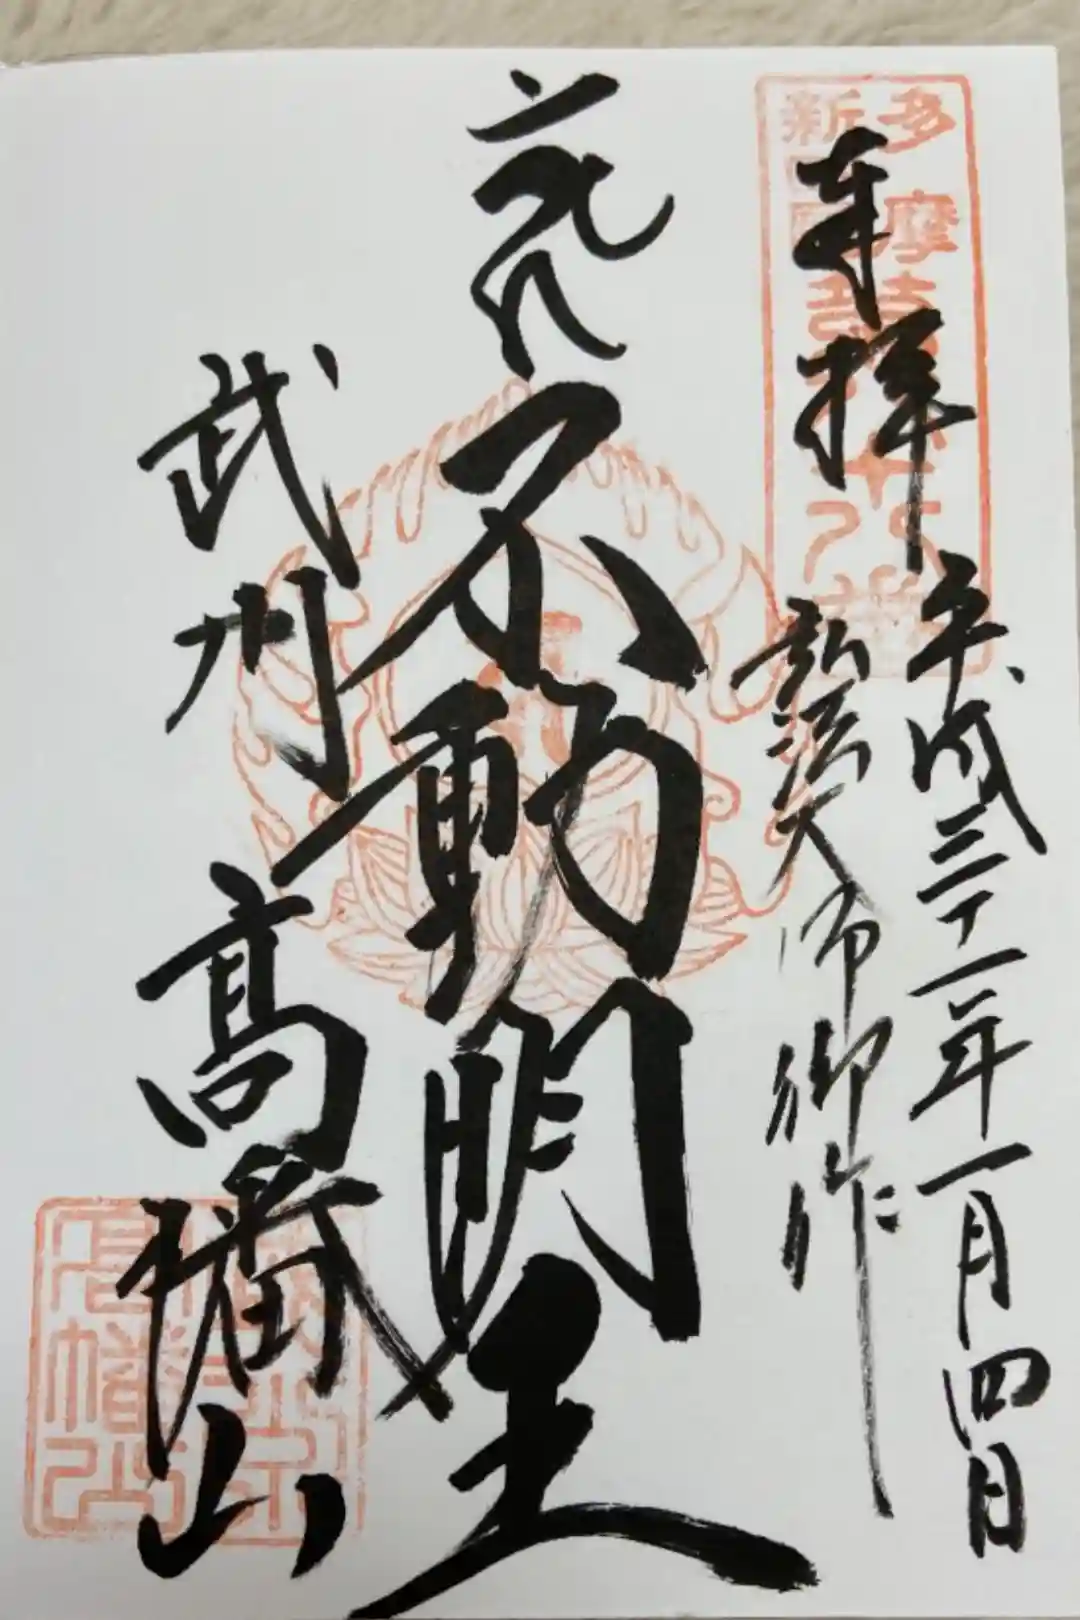 多摩
新四国
奉拝
平成三十一年一月四日
弘法大師御作
不動明王
武州 高幡山
高幡山